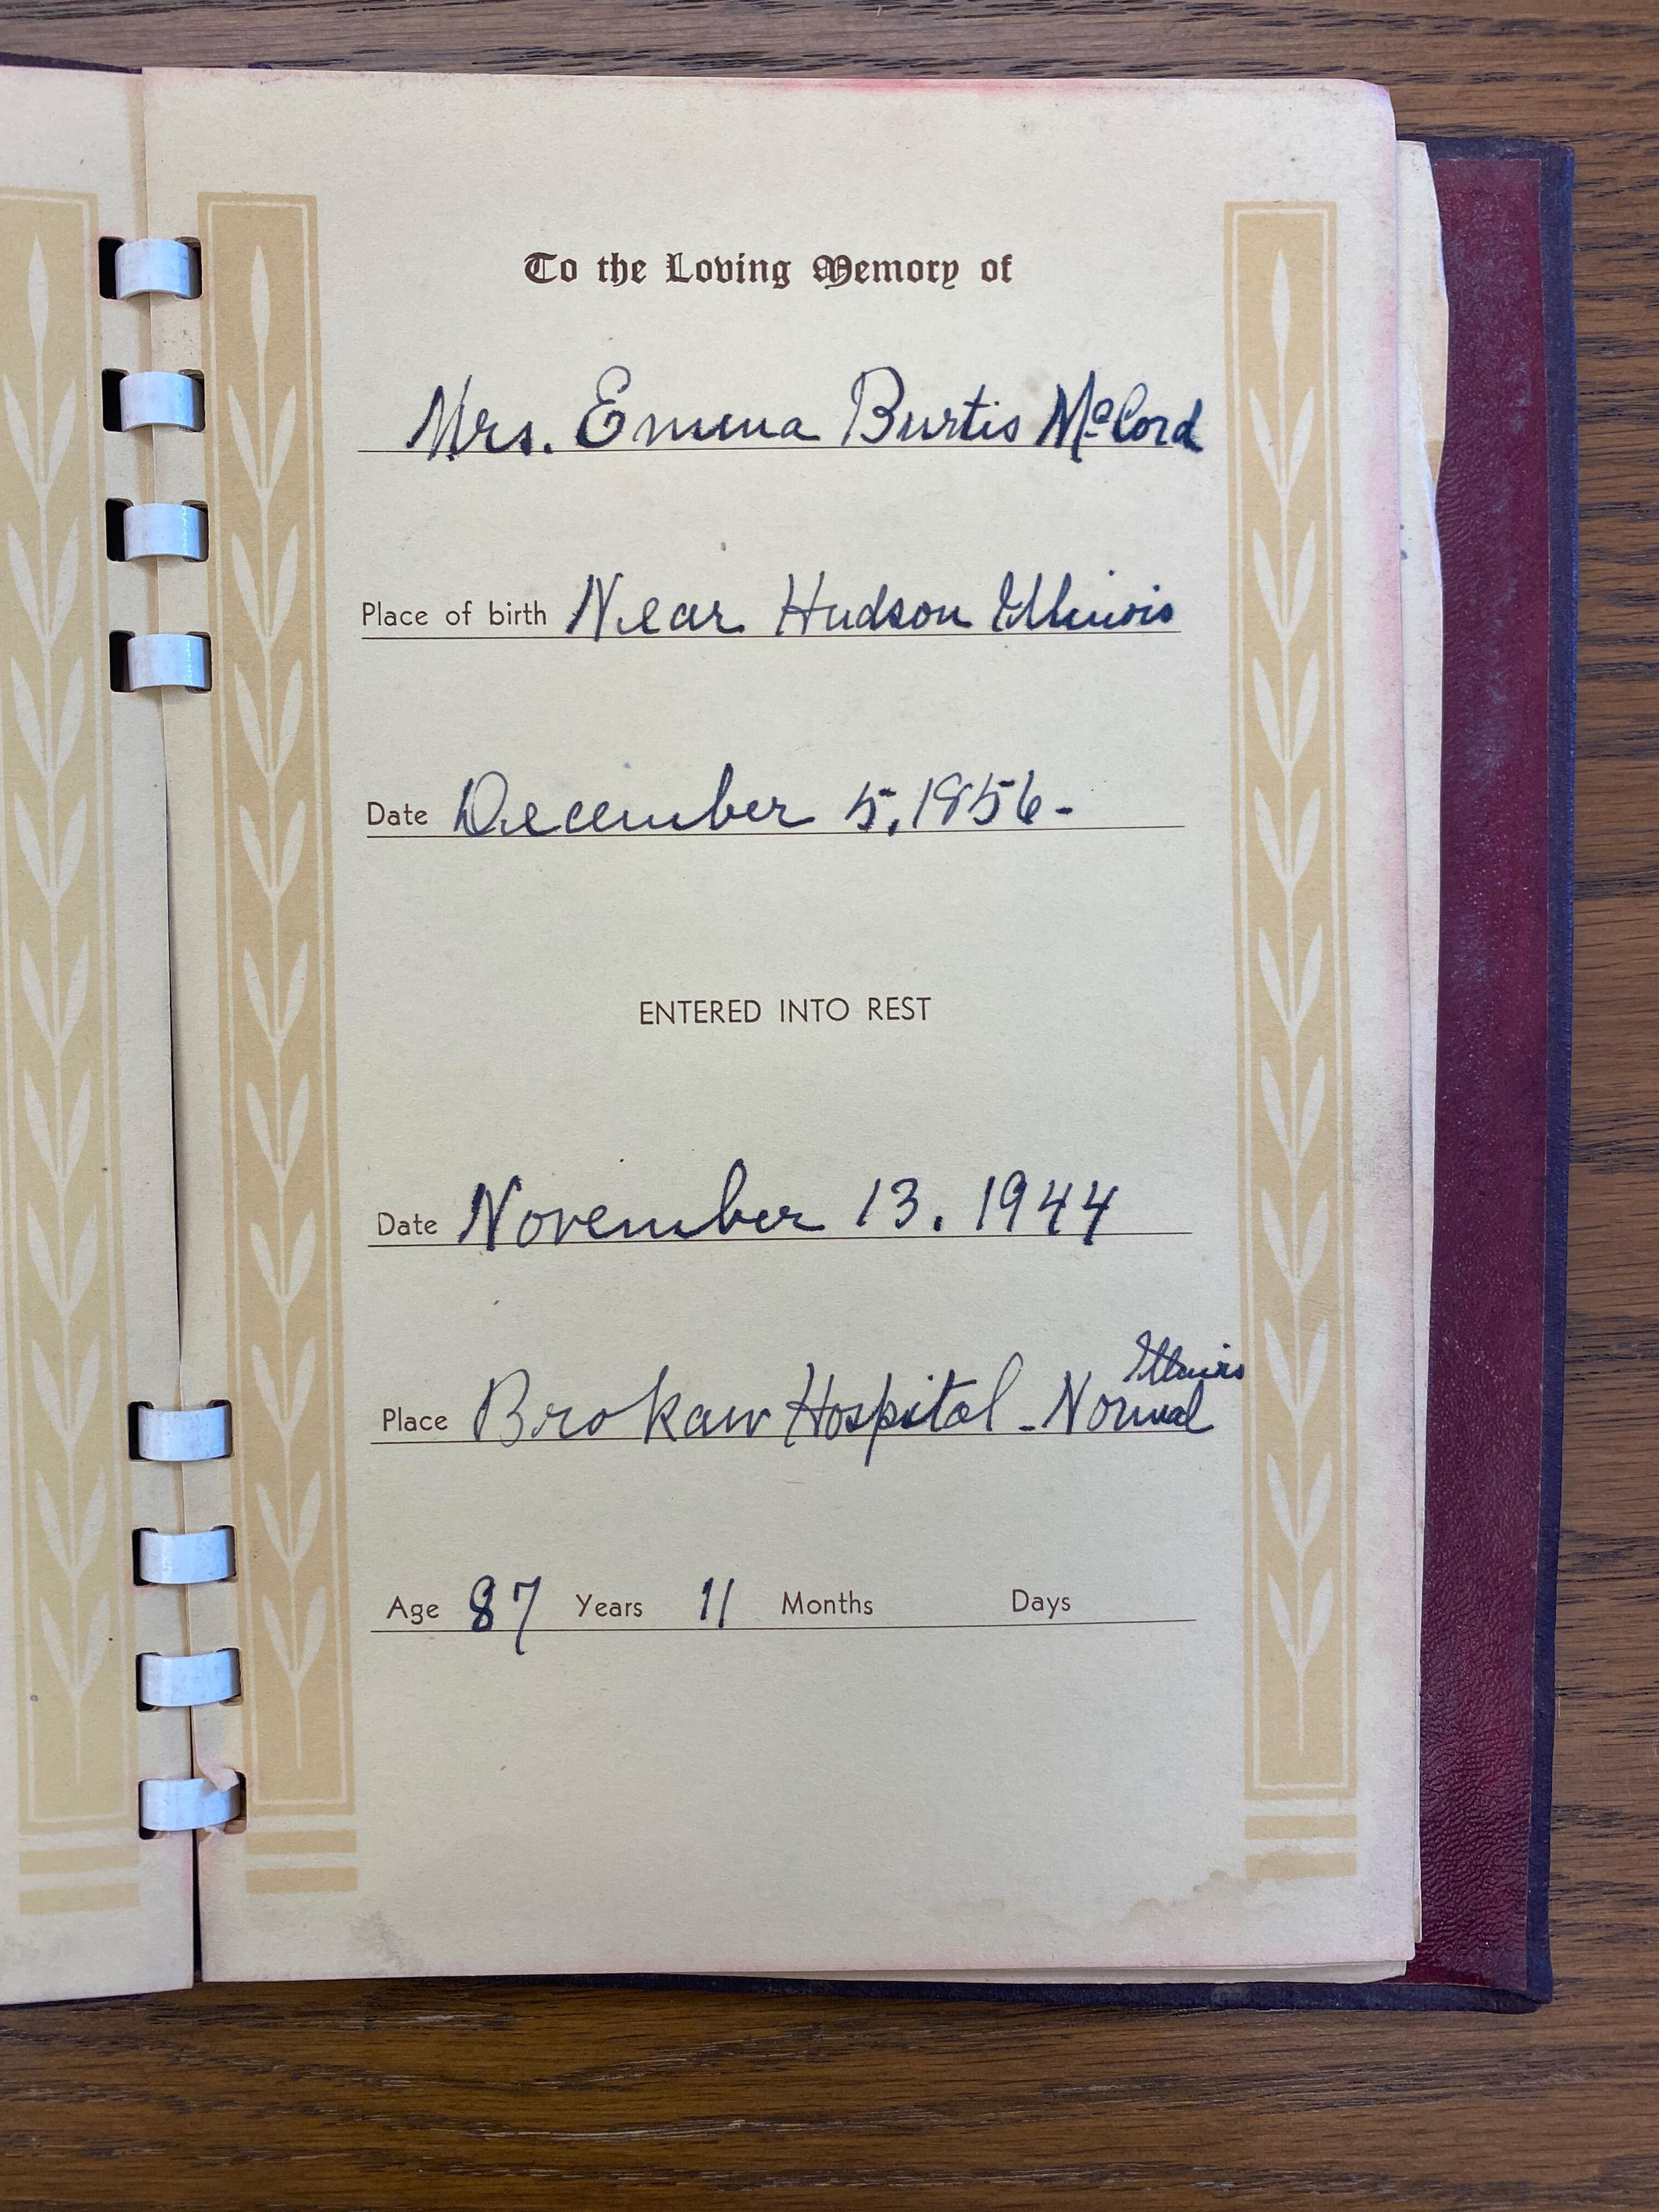 To the Loving Memory of
Mrs. Emma Burtis McCord
Place of birth Near Hudson Illinois
Date December 5, 1856-
ENTERED INTO REST
Date November 13. 1944
Illinois
Place Brokaw Hospital - Normal
Age 87 Years 11 Months Days